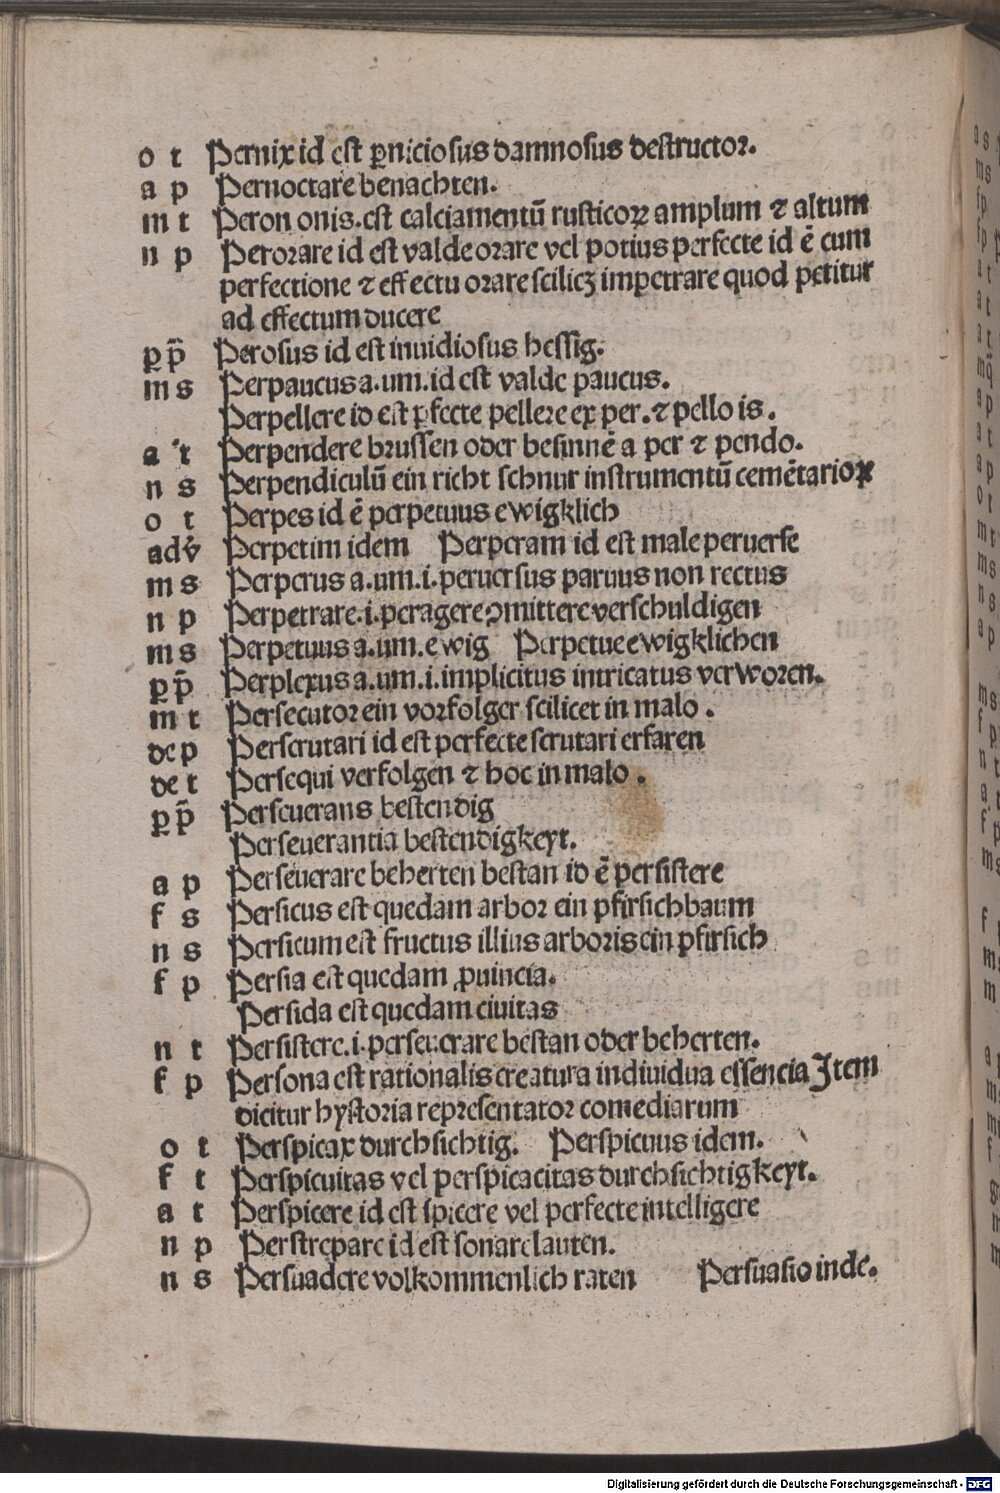 o t Pernix id est ꝑniciosus damnosus destructor.
a p Pernoctare benachten.
m t Peron onis. est calciamentū rusticoꝝ amplum ⁊ altum
n p Perorare id est valde orare vel potius perfecte id ē cum
perfectione ⁊ effectu orare scilicꝫ impetrare quod petitur
ad effectum ducere
ꝑ p̄ Perosus id est inuidiosus hessig.
m s Perpaucus a. um. id est valde paucus.
Perpellere id est ꝑfecte pellere ex per. ⁊ pello is.
a t Perpendere brussen oder besinnē a per ⁊ pendo.
n s Perpendiculū ein richt schnur instrumentū cemētarioꝝ
o t Perpes id ē perpetuus ewigklich
adv̄ Perpetim idem Perperam id est male peruerse
m s Perperus a. um. i. peruersus paruus non rectus
n p Perpetrare. i. peragere ꝯmittere verschuldigen
m s Perpetuus a. um. ewig Perpetue ewigklichen
ꝑ p̄ Perplexus a. um. i. implicitus intricatus verworen.
m t Persecutor ein vorfolger scilicet in malo.
de p Perscrutari id est perfecte scrutari erfaren
de t Persequi verfolgen ⁊ hoc in malo.
ꝑ p̄ Perseuerans bestendig
Perseuerantia bestendigkeyt.
a p Perseuerare beherten bestan id ē persistere
f s Persicus est quedam arbor ein pfirsichbaum
n s Persicum est fructus illius arboris ein pfirsich
f p Persia est quedam ꝓuincia.
Persida est quedam ciuitas
n t Persistere. i. perseuerare bestan oder beherten.
f p Persona est rationalis creatura indiuidua essencia Item
dicitur hystoria representator comediarum
o t Perspicax durchsichtig. Perspicuus idem.
f t Perspicuitas vel perspicacitas durchsichtigkeyt.
a t Perspicere id est spicere vel perfecte intelligere
n p Perstrepare id est sonare lauten.
n s Persuadere volkommenlich raten Persuasio inde.
Digitalisierung gefördert durch die Deutsche Forschungsgemeinschaft - DFG